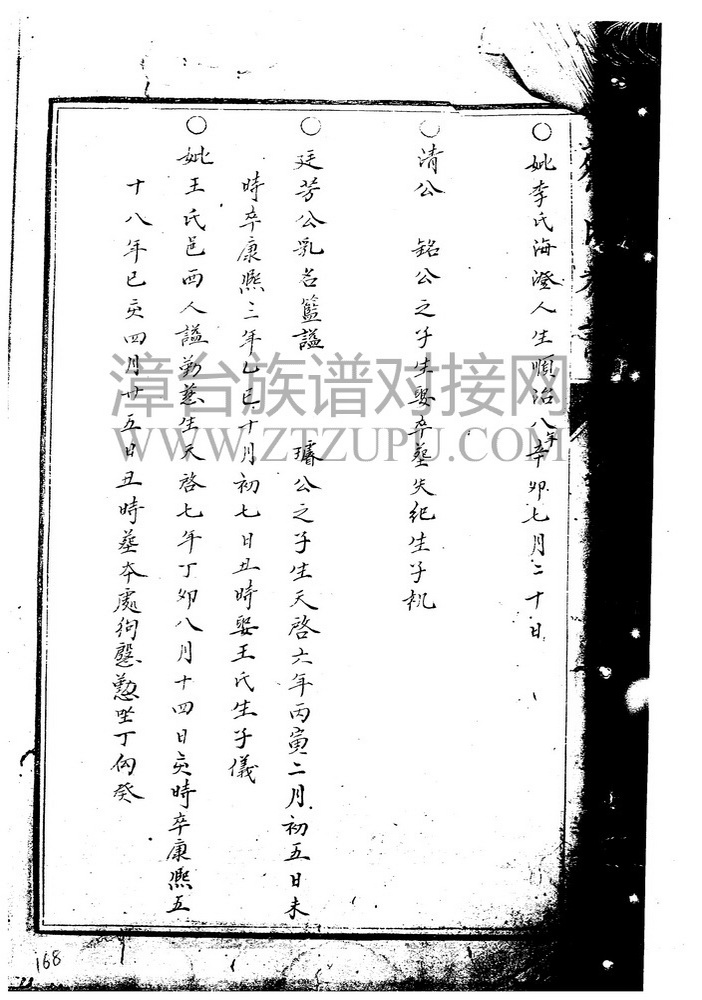 ○妣李氏海澄人生順治八年辛卯七月二十日
○清公　銘公之子生娶卒塟失紀生子机
○廷芳公乳名籃謚　璿公之子生天啓六年丙寅二月初五日未
時卒康熙三年乙巳十月初七日丑時娶王氏生子儀
○妣王氏邑西人謚勤慈生天啓七年丁卯八月十四日亥時卒康熙五
十八年己亥四月廿五日丑時塟本處坐丁向癸
漳台族谱对接网
WWW.ZTZUPU.COM
168